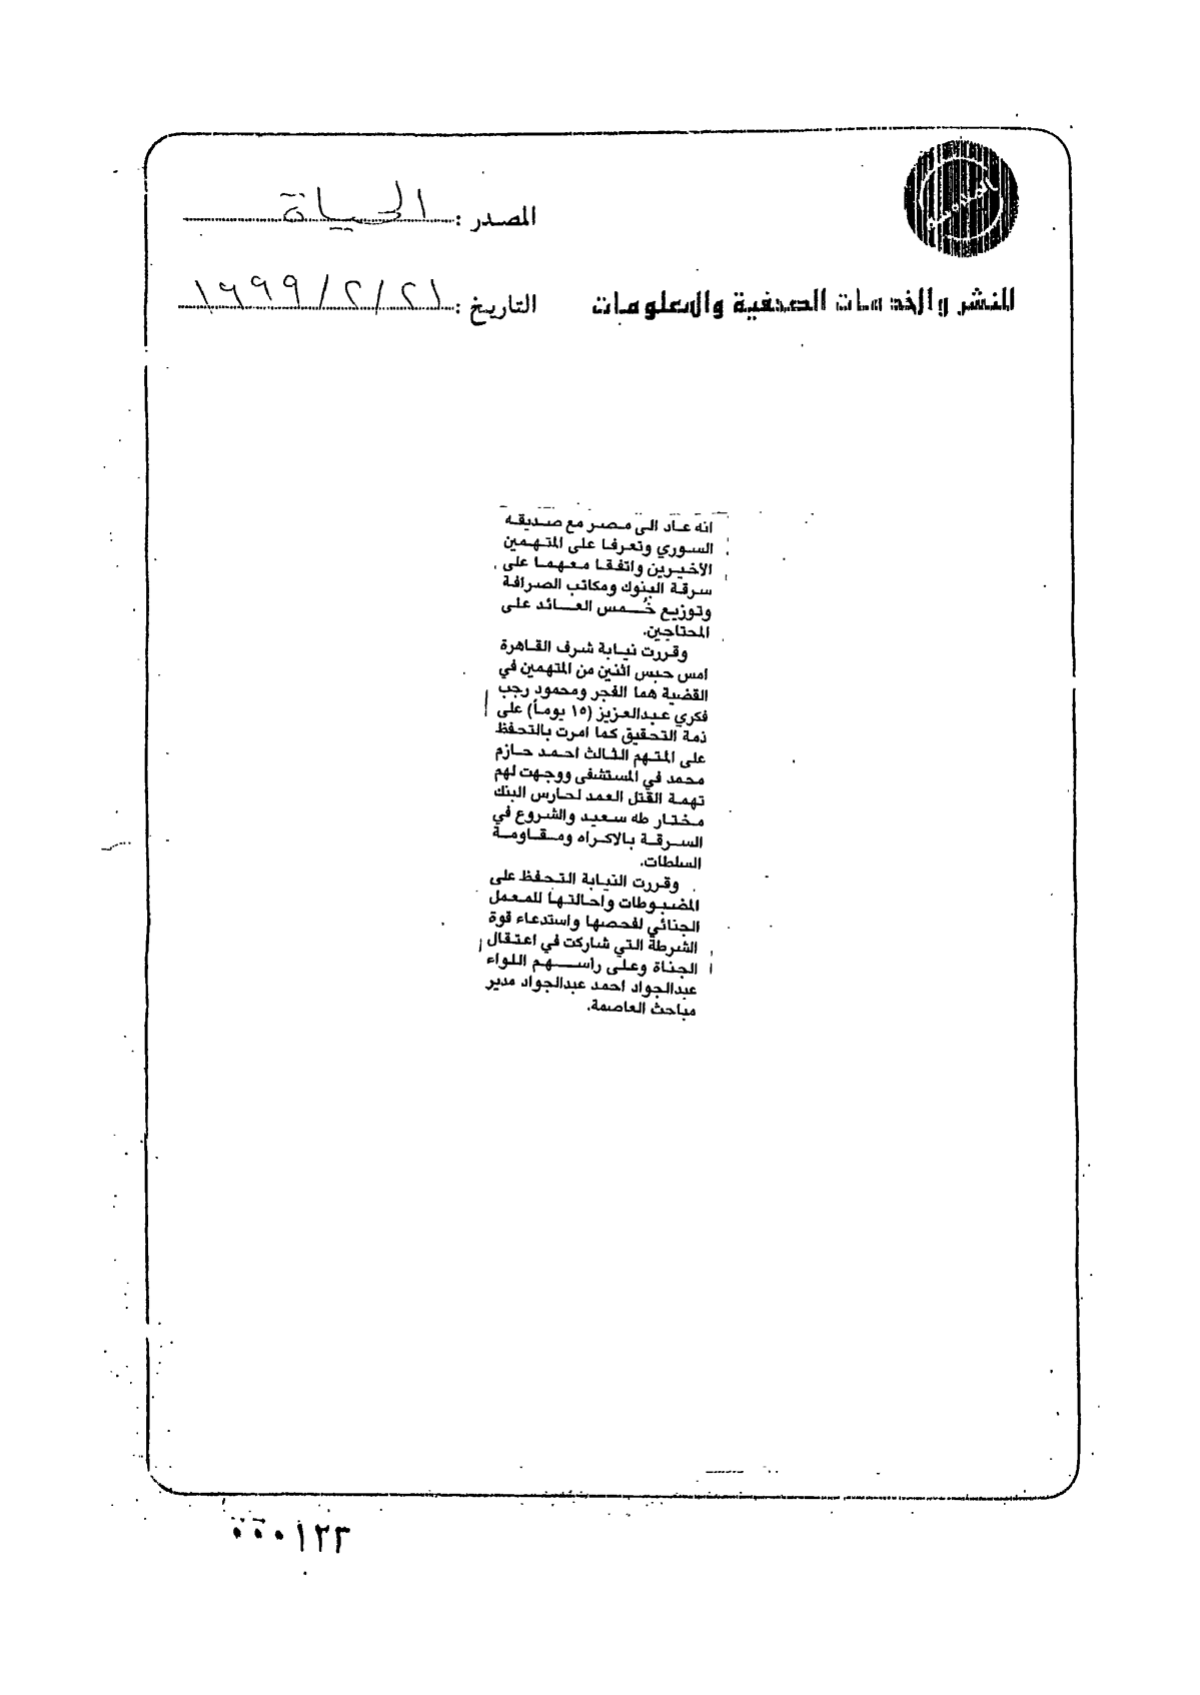 المصدر : الحياة
للنشر والخدمات الصحفية والمعلومات
التاريخ : ٢١/٢/١٩٩٩
انه عاد الى مصر مع صديقه
السوري وتعرفا على المتهمين
الآخيرين واتفقا معهما على
سرقة البنوك ومكاتب الصرافة
وتوزيع خُمس العائد على
المحتاجين.
وقررت نيابة شرف القاهرة
امس حبس اثنين من المتهمين في
القضية هما الفجر ومحمود رجب
فكري عبدالعزيز (١٥ يوماً) على
ذمة التحقيق كما امرت بالتحفظ
على المتهم الثالث احمد حازم
محمد في المستشفى ووجهت لهم
تهمة القتل العمد لحارس البنك
مختار طه سعيد والشروع في
السرقة بالاكراه ومقاومة
السلطات.
وقررت النيابة التحفظ على
المضبوطات واحالتها للمعمل
الجنائي لفحصها واستدعاء قوة
الشرطة التي شاركت في اعتقال
الجناة وعلى رأسهم اللواء
عبدالجواد احمد عبدالجواد مدير
مباحث العاصمة.
٠٠٠١٢٣